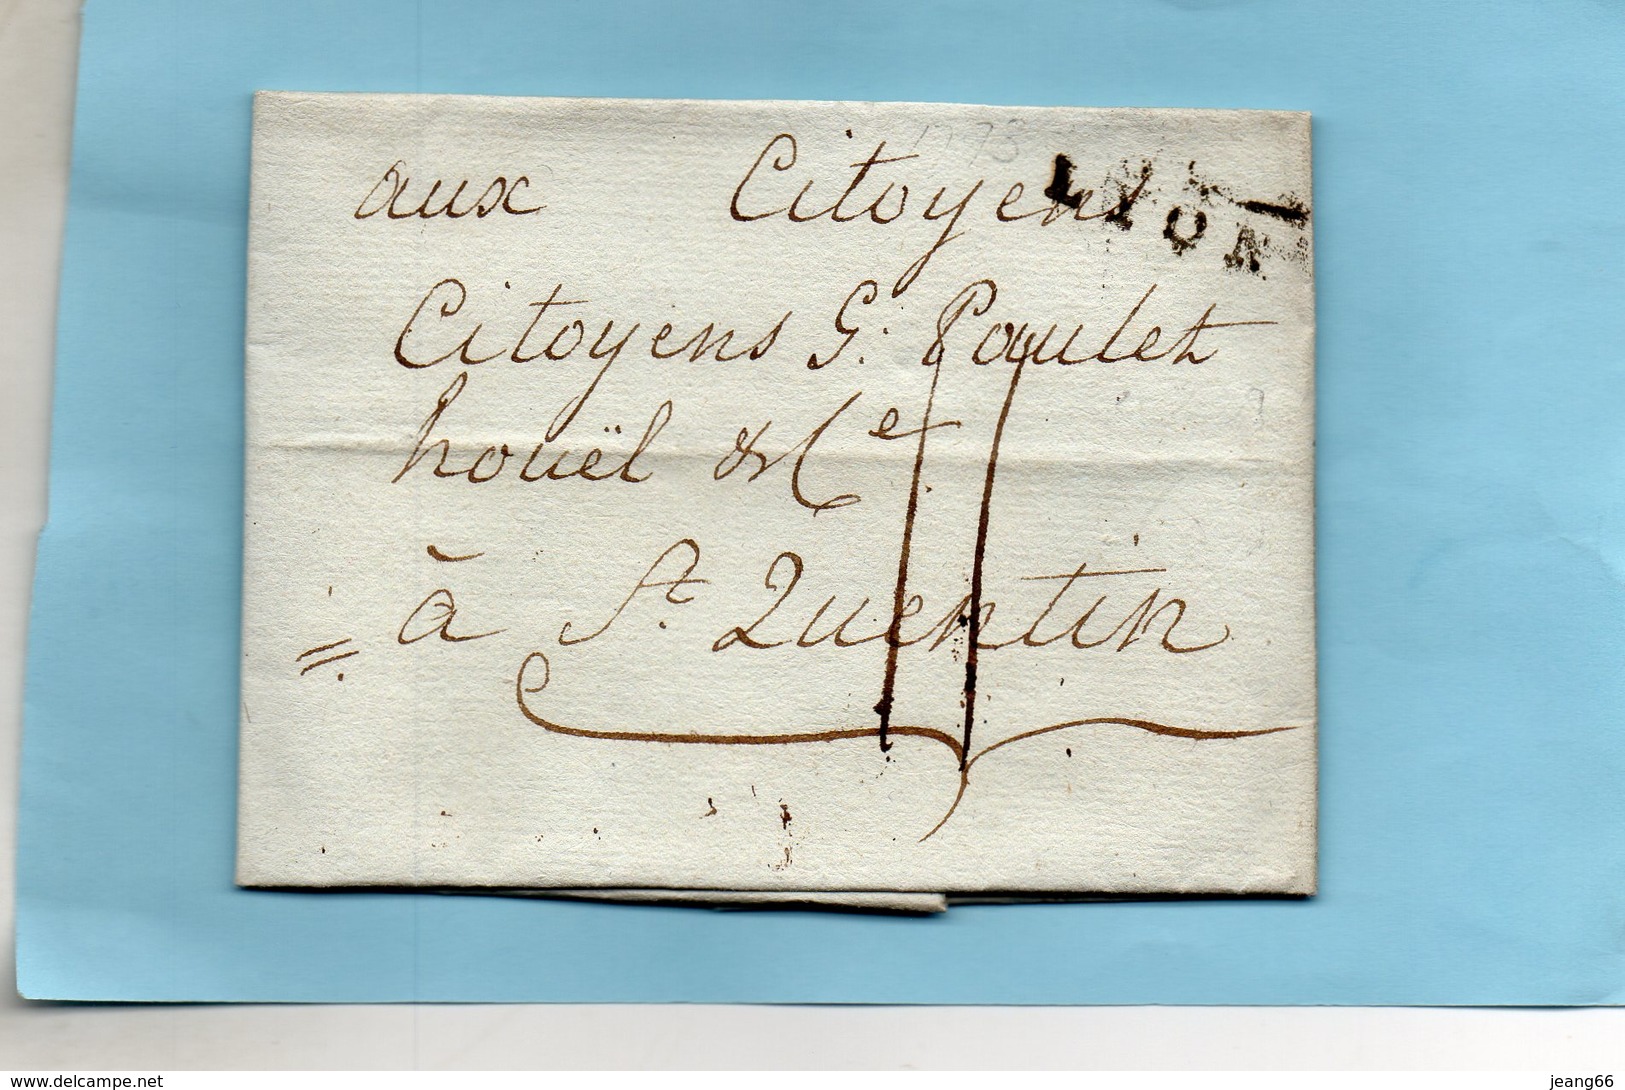 1773
aux Citoyens
LYON
Citoyens G: Poulet
houël & Ce.
à St. Quentin
11
delcampe.net
jeang66